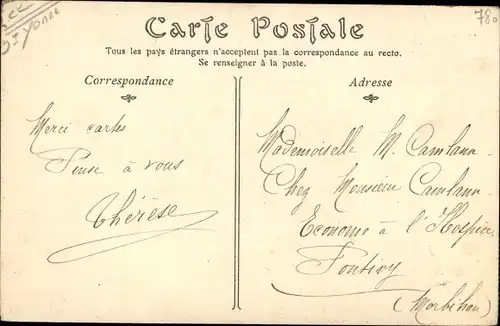 Carte Postale
Tous les pays étrangers n'acceptent pas la correspondance au recto.
Se renseigner à la poste.
Correspondance
Adresse
Merci cartes
Pense à vous
Thérèse
Mademoiselle M. Camlann
Chez Monsieur Camlann
Econome à l'Hospice
Pontivy
(Morbihan)
780
Yonne